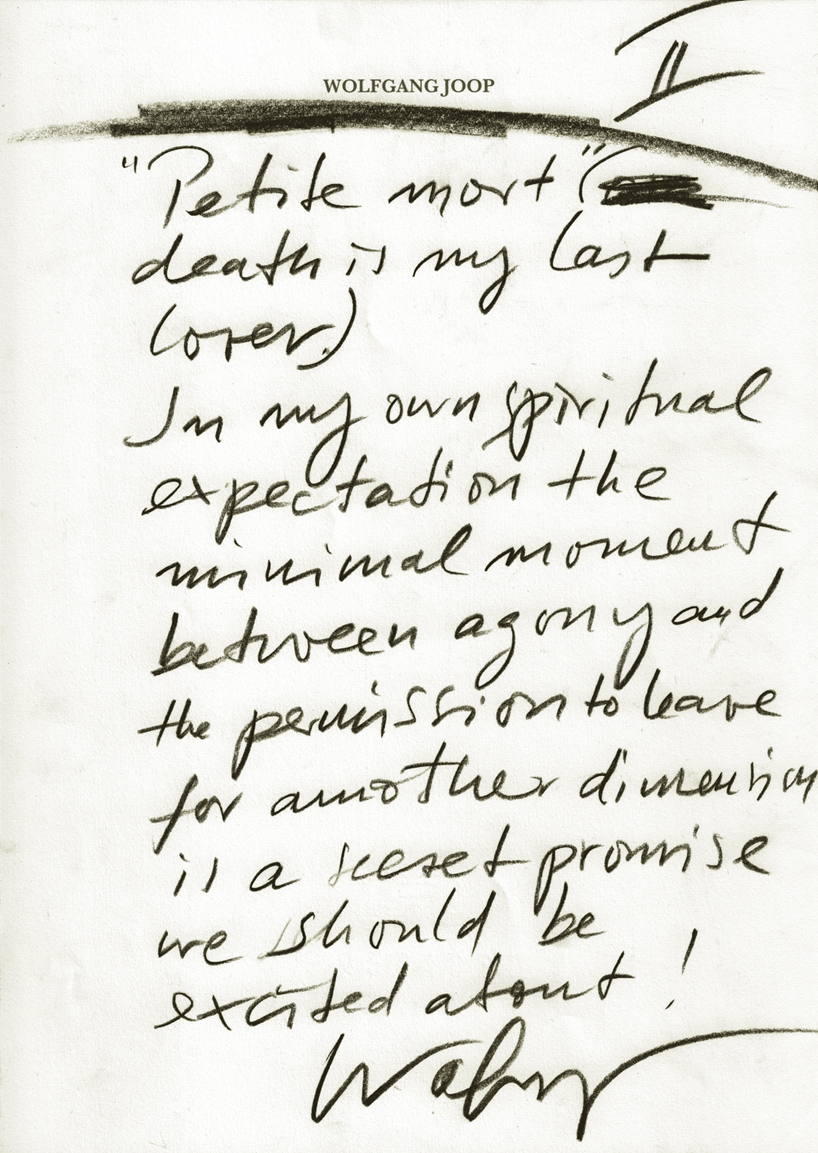 II
WOLFGANG JOOP
"Petite mort" (
death is my last
lover.)
In my own spiritual
expectation the
minimal moment
between agony and
the permission to leave
for another dimension
is a secret promise
we should be
excited about!